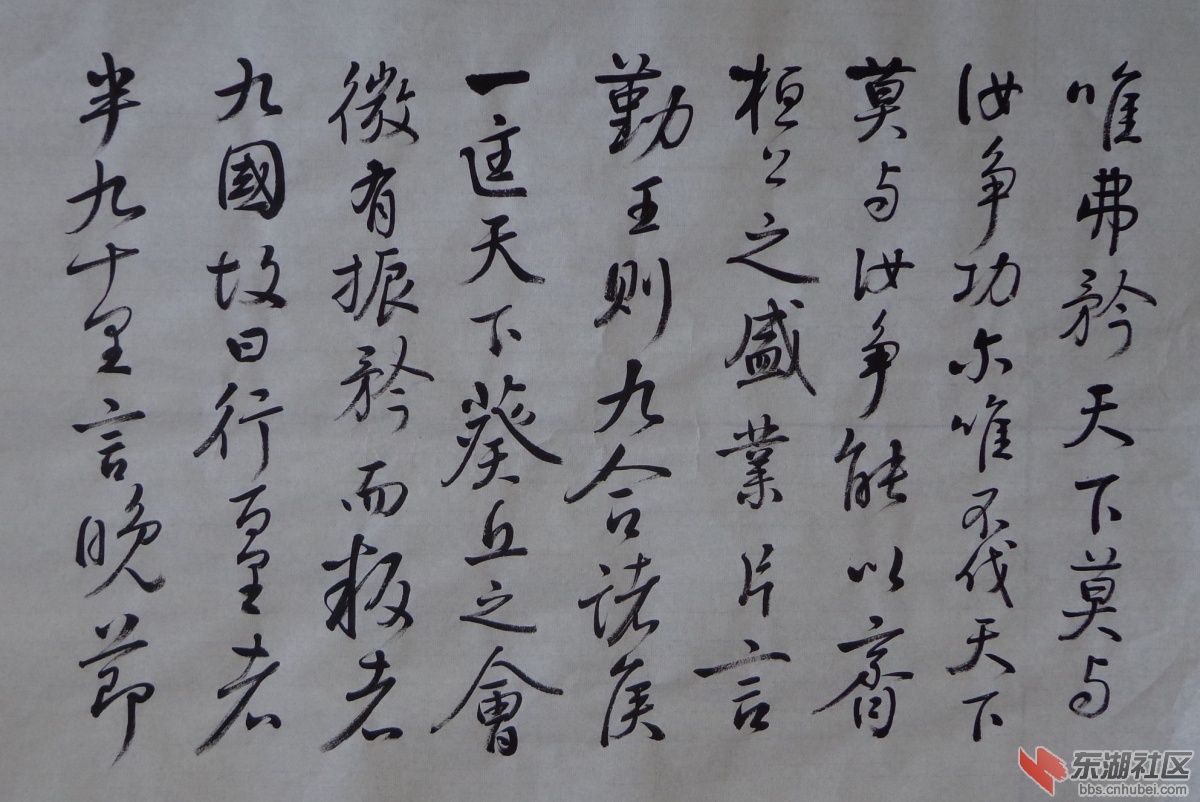 唯弗矜天下莫与
汝争功尔唯不伐天下
莫与汝争能以齊
桓公之盛業片言
勤王则九合诸侯
一匡天下葵丘之會
微有振矜而叛者
九國故曰行百里者
半九十里言晚节
东湖社区
bbs.cnhubei.com